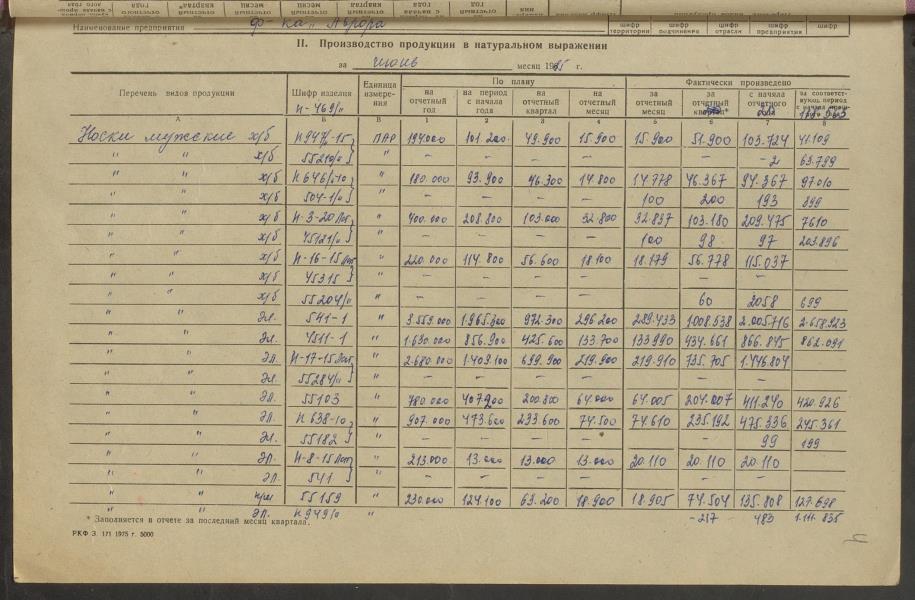 Наименование предприятия ф-ка „Аврора
шифр территории шифр подчинения шифр отрасли шифр предприятия шифр
II. Производство продукции в натуральном выражении
за июнь месяц 19 5 г.
Перечень видов продукции Шифр изделия Единица измерения По плану Фактически произведено
на отчетный год на период с начала года на отчетный квартал на отчетный месяц за отчетный месяц за отчетный квартал* с начала отчетного года за соответствующ. период с начала
А Б В 1 2 3 4 5 6 7 8
Носки мужские х/б ПАР 194000 101.200 49.900 15.900 15.900 51.900 103.724 41.109
" " х/б " – – – – – -2 63.799
" " х/б " 180.000 93.900 46.300 14.800 14.778 46.367 94.367
" " х/б 504-1/о " – – – – 100 200 193 899
" " х/б И-3-20 " 400.000 208.800 103.000 32.800 32.837 103.180 209.475 7610
" " х/б " – – – – 100 98 97 203.896
" " х/б И-16-15 " 220.000 114.800 56.600 18100 18.179 56.778 115.037
" " х/б 45315 " – – – – – –
" " х/б " – – – – 60 2058 699
" " эл. 541-1 " 1.965.300 972.300 296200 289.433 1008.538 2.005.716
" " эл. 4511-1 " 1.630.000 856.900 425.600 133.700 133990 434.661 866.845 862.091
" " эл. И-17-15 " 2.680.000 1.409.100 699.900 219.900 219.910 735.705 1.446.804
" " эл. " – – – – – –
" " эл. 55103 " 780.000 407.200 200.800 64.000 64.005 204.007 411.240 420.926
" " эл. И 638-10 " 907.000 473.600 233.600 74.500 74.610 235.192 475.336 245.361
" " эл. 55182 " – – – – – – 99 199
" " эл. И-8-15 " 213.000 13.000 13.000 13.000 20.110 20.110 20.110
" " эл. 541 " – – – – – – –
" " 55159 " 230.000 124.100 63.200 18.900 18.905 74.504 135.808 127.698
" " эл. И 949/о " -217 483 1.111.835
* Заполняется в отчете за последний месяц квартала.
РКФ З. 171 1975 г. 5000